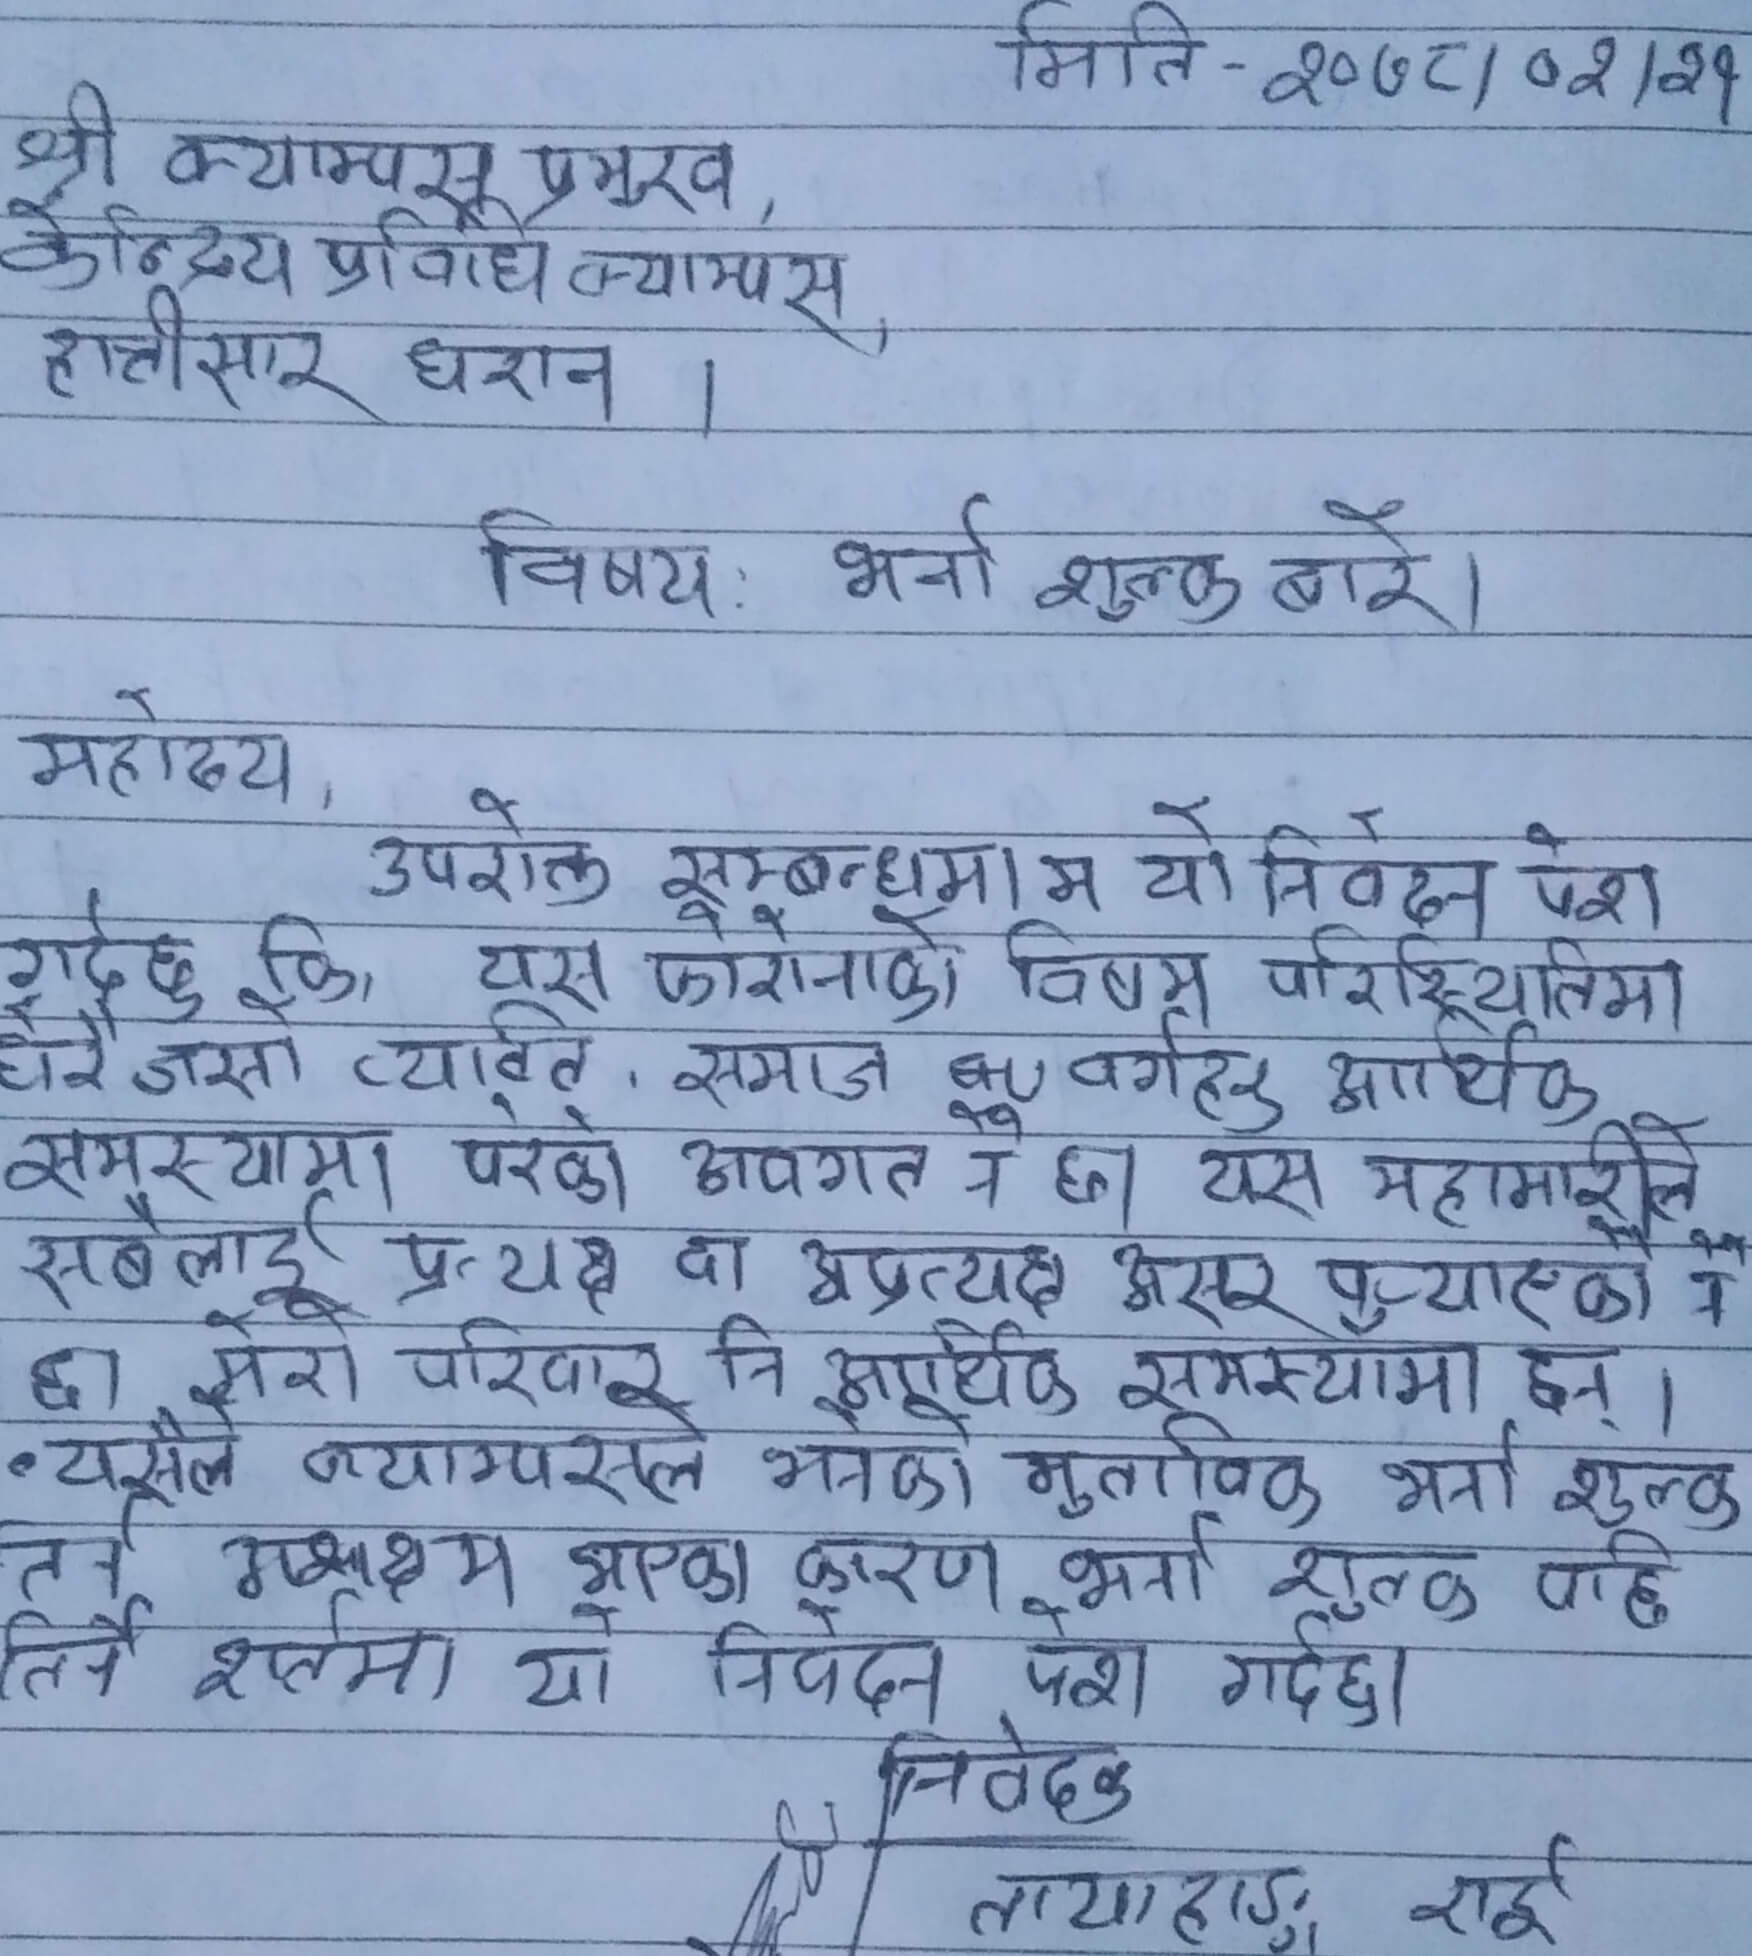 मिति - २०७८/०२/२१
श्री क्याम्पस प्रमुख,
केन्द्रिय प्रविधि क्याम्पस,
हात्तीसार धरान ।
विषय: भर्ना शुल्क बारे।
महोदय,
उपरोक्त सम्बन्धमा म यो निवेदन पेश
गर्दैछु कि, यस कोरोनाको विषम परिस्थितिमा
धेरै जसो व्यक्ति, समाज वर्गहरु आर्थिक
समस्यामा परेको अवगत नै छ। यस महामारीले
सबैलाई प्रत्यक्ष वा अप्रत्यक्ष असर पुर्‍याएको नै
छ। मेरो परिवार नि आर्थिक समस्यामा छन्।
यसैले क्याम्पसले भनेको मुताविक भर्ना शुल्क
तिर्न असक्षम भएको कारण भर्ना शुल्क पछि
तिर्ने शर्तमा यो निवेदन पेश गर्दछु।
निवेदक
लायाहाङ राई